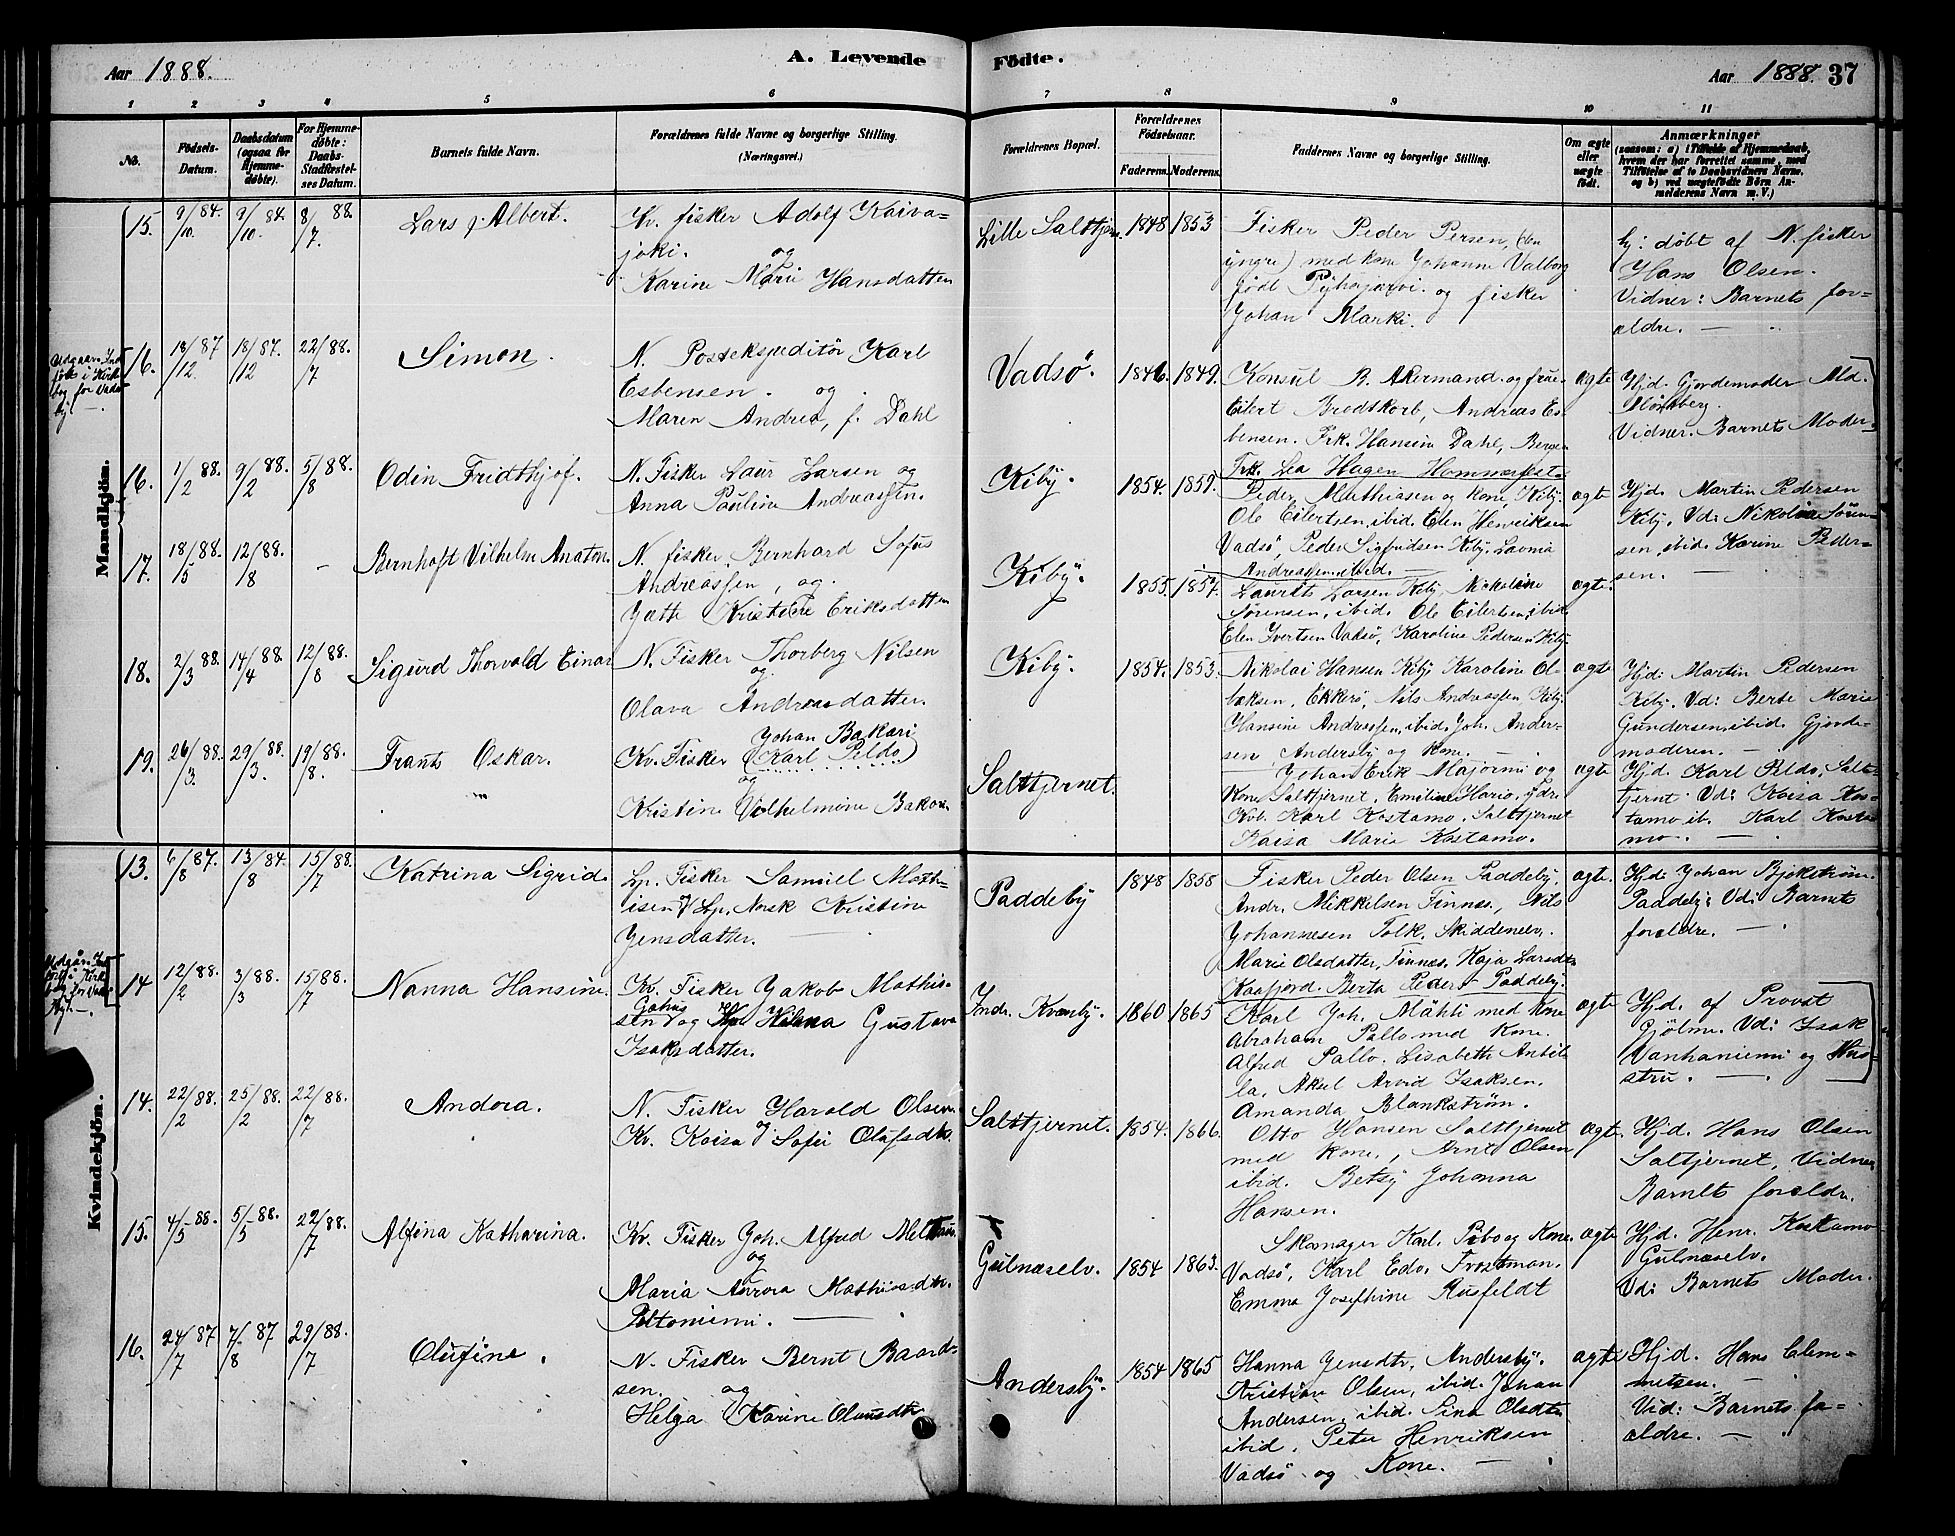 Aar 1888.
A. Levende Födte.
Aar 1888. 37
1 2 3 4 5 6 7 8 9 10 11
No.
Födsels-
Datum.
Daabsdatum
(ogsaa for
Hjemme-
døbte).
For Hjemme-
døbte:
Daabs-
Stadfæstel-
ses Datum.
Barnets fulde Navn.
Forældrenes fulde Navne og borgerlige Stilling.
(Næringsvei.)
Forældrenes Bopæl.
Forældrenes
Födselsaar.
Faderens. Moderens.
Faddernes Navne og borgerlige Stilling.
Om ægte
eller
uægte
født.
Anmærkninger
(saasom: a) i Tilfælde af Hjemmedaab,
hvem der har forrettet samme, med
Tilføielse af to Daabsvidners Navne,
og b) ved uægtefødte Børn An-
melderens Navn m. V.)
Mandkjön.
15. 9/10 84. 9/10 84. 8/7 88. Lars Albert.
Kv. fisker Adolf Kaiva-
joki. og
Karine Marie Hansdatter
Lille Salttjern. 1848 1853
Fisker Peder Persen, (den
yngre) med kone Johanne Valborg
født Pyhajarvi. og fisker
Johan Marki.
hj: døbt af N. fisker
Hans Olsen.
Vidner: Barnets for-
ældre. —
16. 18/12 87 18/12 87. 22/7 88. Simon.
N. Postekspeditör Karl
Esbensen. og
Maren Andrea, f. Dahl
Vadsö. 1846. 1849.
Konsul B. Akermand og frue.
Eilert Brodtkorb, Andreas Es-
bensen. Frk. Hansine Dahl, Bergen
Frk. Lea Hagen Hammerfest.
ægte
Hjd. Gjordemoder Md.
Vidner. Barnets Moder.
16. 1/2 88. 9/2 88. 5/8 88. Odin Fridthjof.
N. Fisker Laur Larsen og
Anna Pauline Andreassen.
Kiby. 1854. 1859.
Peder Mathiasen og kone, Kiby.
Ole Eilertsen, ibid. Elen Henriksen
Vadsö, Peder Sigfridsen Kiby. Lavinia
Andreassen, ibid. —
ægte
Hjd. Martin Pedersen
Kiby. Vd: Nikolea Sören-
sen, ibid. Karine Peder-
sen. —
17. 18/5 88. 12/8 88. – Bernhoft Vilhelm Anaton.
N. fisker Bernhard Sofus
Andreassen, og
Kristine Eriksdatter
Kiby. 1855.
Laurits Larsen Kiby, Nikoline
Sörensen, ibid. Ole Eilertsen, ibid.
Elen Ivertsen Vadsö, Karoline Pedersen Kiby
ægte.
18. 2/3 88. 14/4 88. 12/8 88. Sigurd Thorvald Einar
N. Fisker Thorberg Nilsen
og
Olava Andreasdatter.
Kiby. 1854. 1853.
Nikolai Hansen Kiby, Karoline Ol-
Ekkerö, Nils Andreassen Kiby.
Hansine Andreassen, ibid. Joh. Ander-
sen, Andersby og kone. —
ægte
Hjd: Martin Pedersen
Kiby. Vd: Berte Marie
Gundersen, ibid. Gjorde-
moderen. —
19. 26/3 88. 29/3 88. 19/8 88. Frants Oskar.
Johan Bakari
Kv. Fisker (Karl Peldo)
og
Kristine Vilhelmine Bakari
Salttjernet.
Johan Erik Majormi og
Kone Saltjernet. Emiline Hario, ydre
Kvb. Karl Kostamo. Saltjernet
Kaisa Maria Kostamo.
ægte
Hjd. Karl Peldo, Salt-
tjernt. Vd: Kaisa Kos-
tamo ib. Karl Kosta-
mo. —
Kvindekjön.
13. 6/8 87. 13/8 84. 15/7 88. Katrina Sigrid.
Lp. Fisker Samuel Math-
isen og Lp. Norsk Kristine
Jensdatter. —
Paddeby 1848 1858
Fisker Peder Olsen Paddeby,
Andr. Mikkelsen Finnes, Nils
Johannesen Tolk. Skiddenelv.
Marie Olsdatter, Finnes, Kaja Larsdtr
Kaafjord. Berta Peders- Paddeby.
ægte.
Hjd. Johan Bjokström.
Paddeby: Vd: Barnets
forældre. —
14 12/2 88. 3/3 88. 15/7 88. Nanna Hansine.
Kv. Fisker Jakob Mathis-
sen og Hilma Gustava
Isaksdatter.
Indr. Kvenby. 1860 1865
Karl Joh. Mähti med kone
Abraham Pallo med Kone.
Alfred Pallo. Lisabeth Antil-
la, Aksel Arvid Isaksen.
Amanda Blankström.
ægte
Hjd. af Provst
Gjölme. Vd: Isak
Vanhaniemi og Hus-
stru. —
14. 22/2 88. 25/2 88. 22/7 88. Andora.
N. Fisker Harald Olsen
Kv. Kaisa Sofie Olufsdtr.
Saltjernet. 1854. 1866.
Otto Hansen Saltjernet
med kone, Arnt Olsen
ibid. Betsy Johanna
Hansen.
ægte.
Hjd. Hans Olsen
Saltjernet, Vidner
Barnets foreldr.
15. 4/5 88. 5/5 88. 22/7 88. Alfina Katharina.
Kv. Fisker Joh. Alfred
og
Maria Aurora Mathiasdtr.
Peltoniemi. —
Gulnæselv. 1854 1863.
Skomager Karl. Pibo og Kone
Vadsö, Karl Edv. Frostman.
Emma Josefhine Rusfeldt
ægte
Hjd. Henr. Kostamo
Gulnæselv.
Vd: Barnets Moder.
16. 24/7 87 7/8 87 29/7 88. Olufine.
N. Fisker Bernt Baard-
sen. og
Helga Karine Olausdtr
Andersby. 1854 1865
Hanna Jensdtr, Andersby.
Kristian Olsen, ibid. Johan
Andersen, ibid. Sina Olsdtr
ibid, Peter Henriksen
Vadsö og Kone. —
ægte
Hjd. Hans Clem-
metsen. —
Vid: Barnets fo-
ældre. —